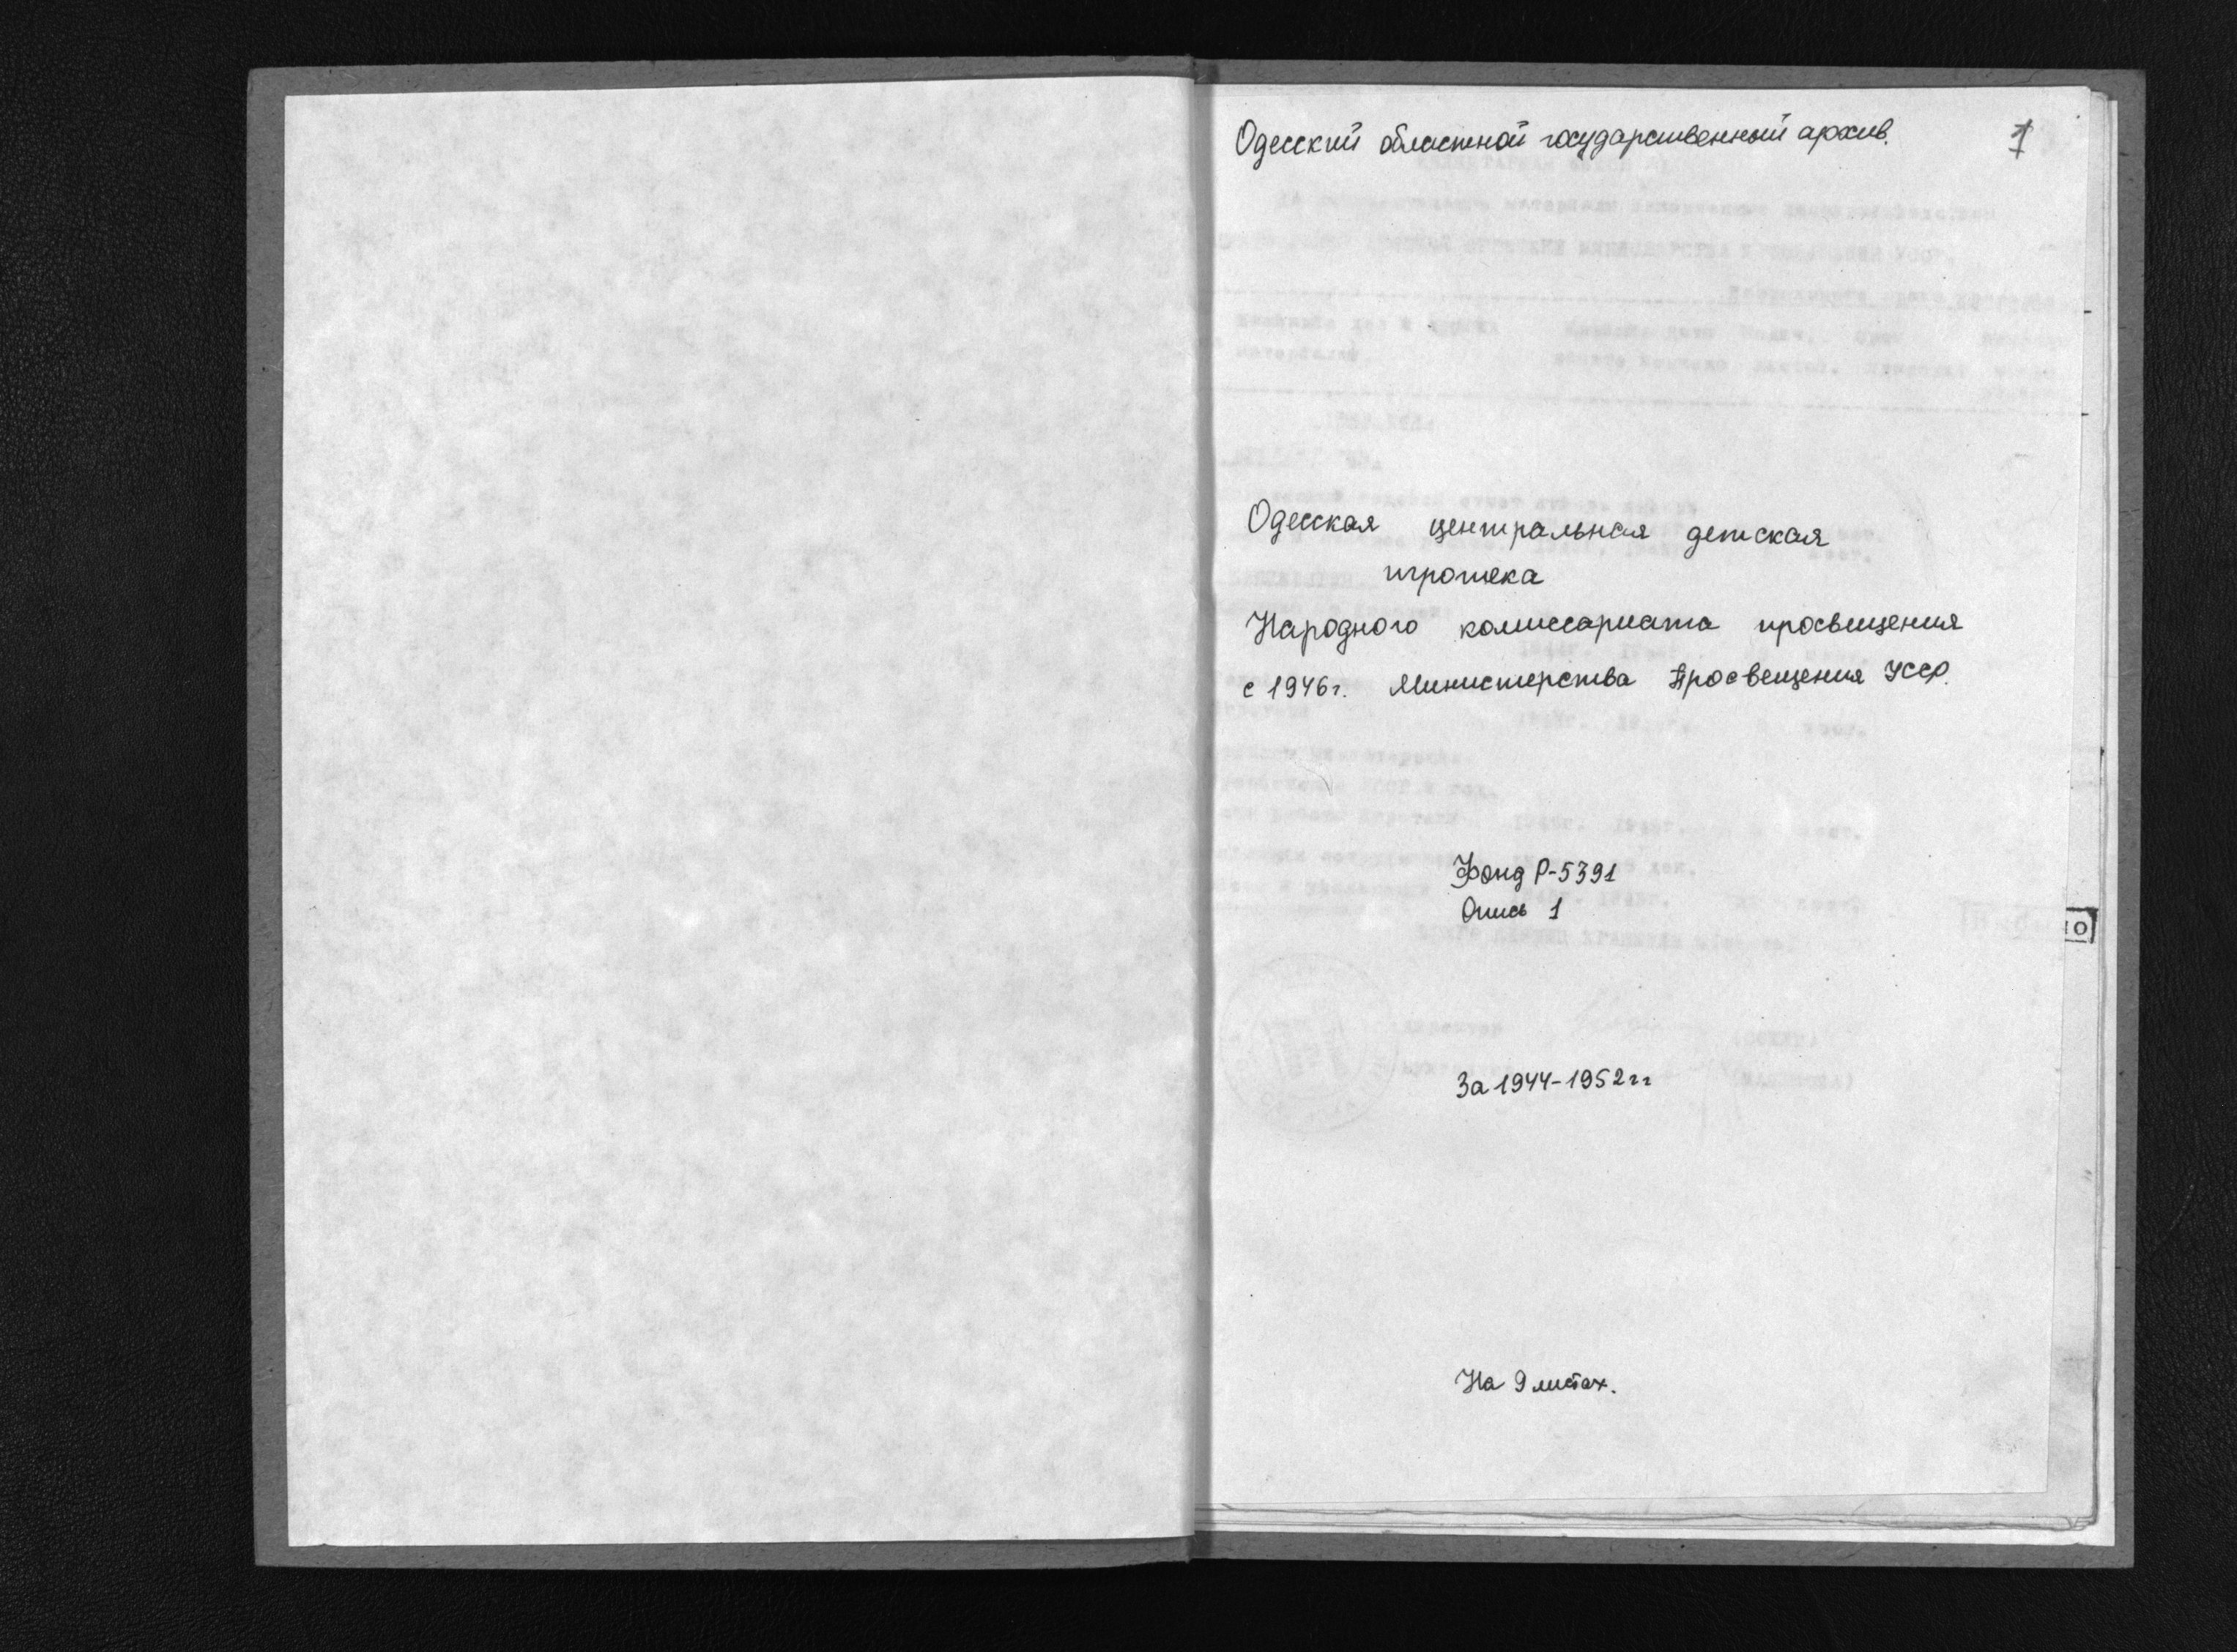 Одесский областной государственный архив.
1
Одесская центральная детская
игротека
Народного комиссариата просвещения
с 1946г. Министерства Просвещения УССР.
Фонд Р-5391
Опись 1
За 1944-1952гг
На 9 листах.